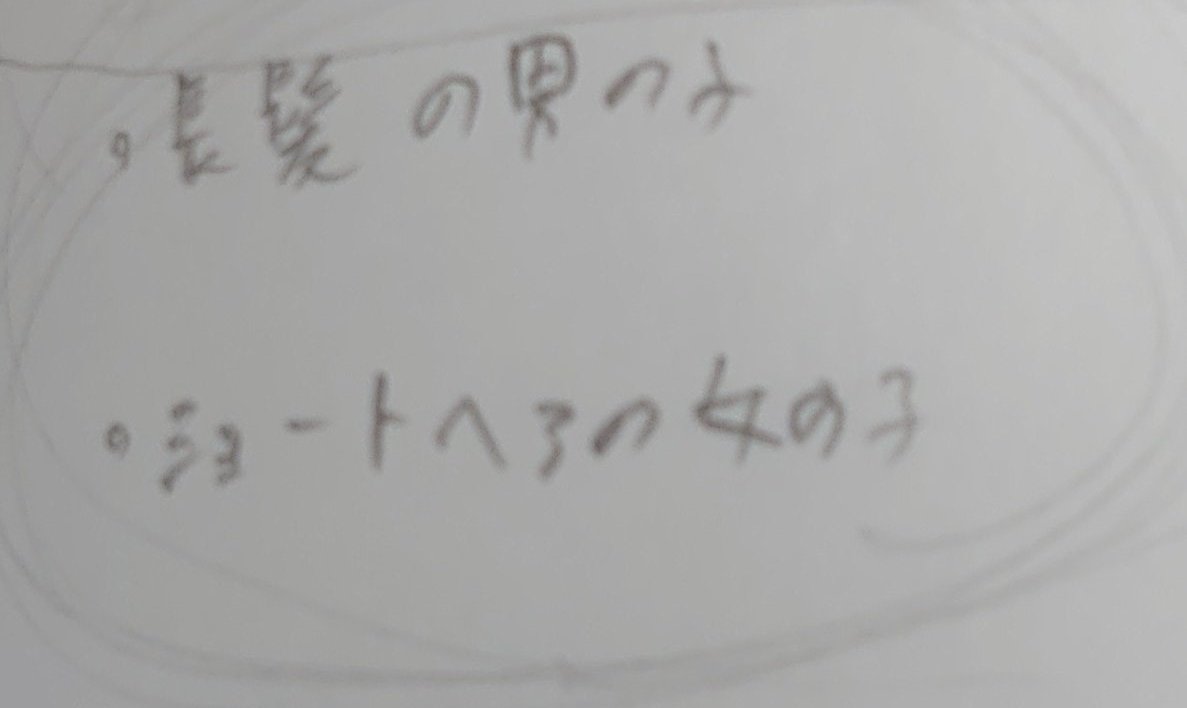 。長髪の男の子
。ショートヘアの女の子